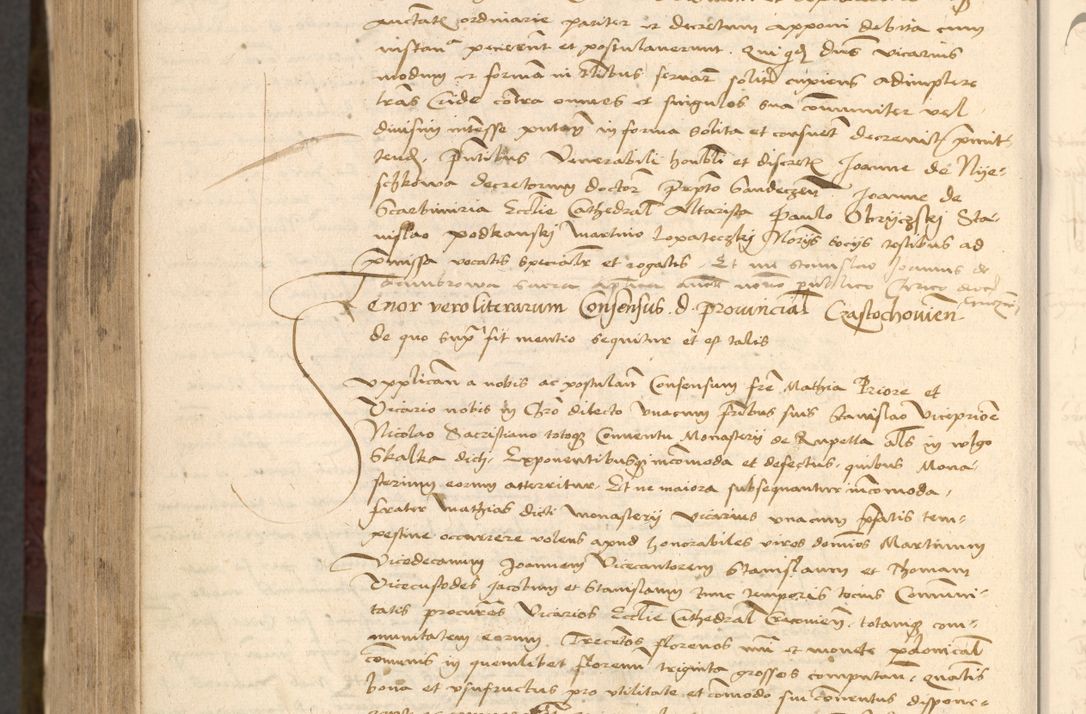 auctatem ordinarie pariter et decretum apponi debita cum
instan peterent et postulaverunt. Qui qd Dns vicarius
modum et formam in talibus servari solitam cupiens adimplere
tras Cride contra omnes et singulos sua communiter vel
divisim interesse putan in forma solita et consuet decrevit
tend. Pntibus Venerabili honbli et discretis Joanne de Nye-
schkowa decretorum doctor Prepto Sandeczen Joanne de
Scarbimiria Ecclie Cathedral Altarista Paulo Obryczskj Sta-
nislao podkanskj Martino Lopateczkj Noriis socijs testibus ad
premissa vocatis specialr et rogatis. Et me Stanislao Joannis de
Dambrowa sacra aplica auct noto publico Clerico dioc
Tenor vero literarum Consensus. d. Provincial Czastochovien
de quo supra fit mentio sequitur et est talis
Supplicam a nobis ac postulant Consensum fre Mathia Priore et
Vicario nobis in Chro dilecto unacum fribus suis Stanislao Vicepriore
Nicolao Sacristiano totoq Conventu Monasterij de Rupella als in vulgo
Skalka dicti. Exponentibus incomoda et defectus. quibus Mona-
sterium eorum atteritur. Et ne maiora subsequantur incomoda,
frater Mathias dicti monasterij vicarius unacum pfatis tem-
pestive occurrere volens apud honorabiles viros dominos Martinum
Vicedecanum Joannem Vicecantorem Stanislaum et Thomam
Vicecustodes Jacobum et Stanislaum tunc temporis totius Communi-
tatis procures Vicarios Ecclie Cathedral Cracovien. totamq com-
munitatem eorum. Trecetos florenos mi et monete polonical
comunis in quemlibet florenum triginta grossos computan. quatis
bona et usufructus pro utilitate et comodo sui conventus dispone-